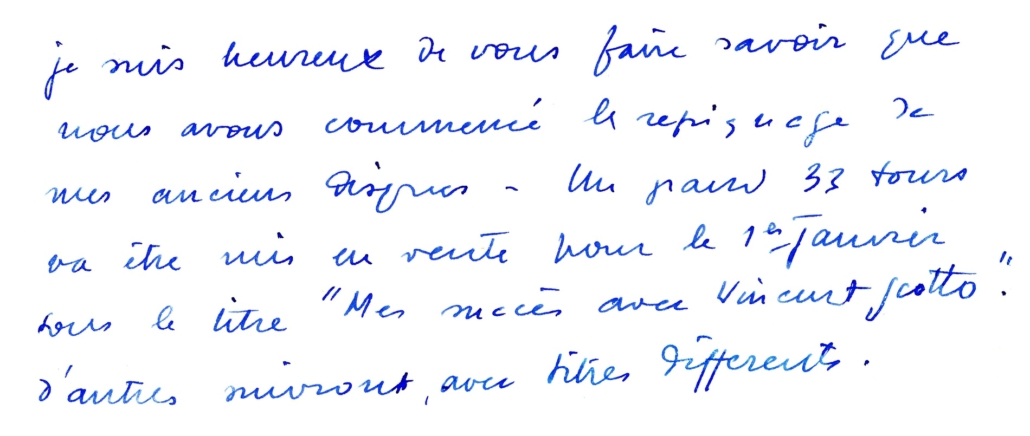 je suis heureux de vous faire savoir que
nous avons commencé le repiquage de
mes anciens disques - Un grand 33 tours
va être mis en vente pour le 1er Janvier
sous le titre "Mes succès avec Vincent Scotto".
d'autres suivront, avec titres differents.